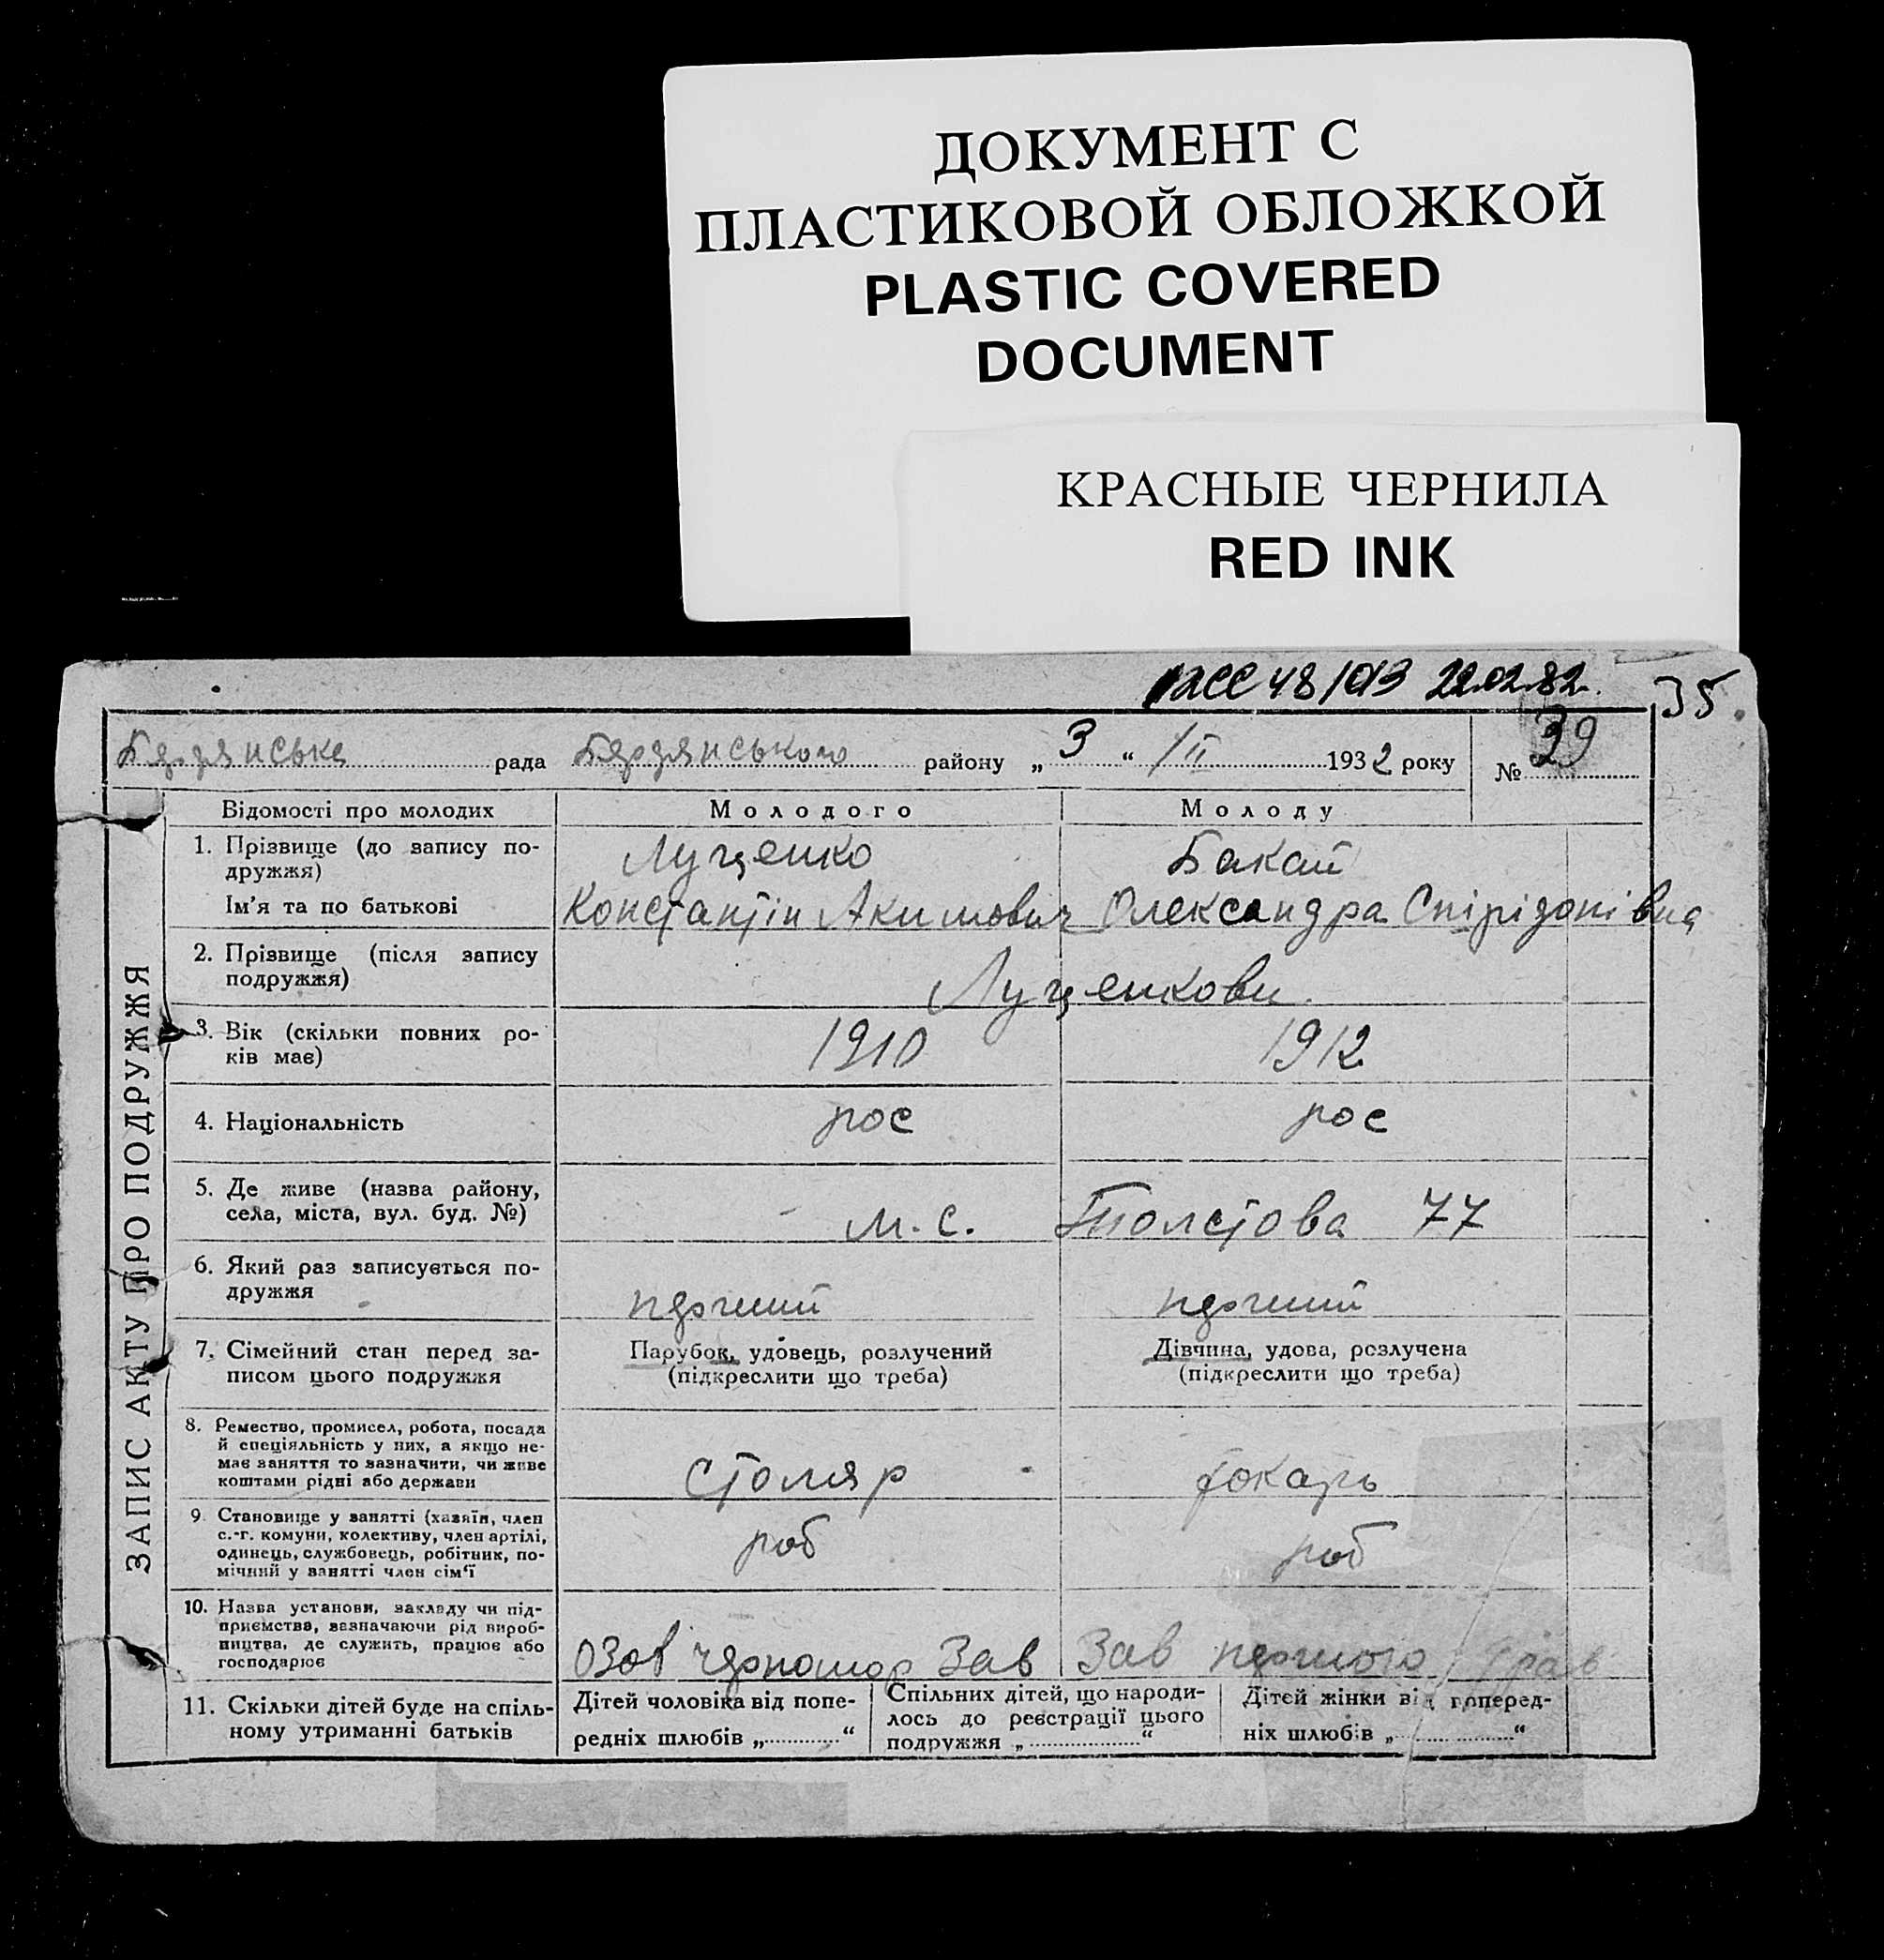 ДОКУМЕНТ С
ПЛАСТИКОВОЙ ОБЛОЖКОЙ
PLASTIC COVERED
DOCUMENT
КРАСНЫЕ ЧЕРНИЛА
RED INK
22.02.82.
35.
Бердянська рада Бердянського району „3“ /II 1932 року № 39
ЗАПИС АКТУ ПРО ПОДРУЖЖЯ
Відомості про молодих Молодого Молоду
1. Прізвище (до запису по-
дружжя)
Луценко Бакай
Ім'я та по батькові Константін Акимович Олександра Спірідонівна
2. Прізвище (після запису
подружжя)
Луценкови.
3. Вік (скільки повних ро-
ків має)
1910 1912
4. Національність рос рос
5. Де живе (назва району,
села, міста, вул. буд. №)
м. с. Толстова 77
6. Який раз записується по-
дружжя
перший перший
7. Сімейний стан перед за-
писом цього подружжя
Парубок, удовець, розлучений
(підкреслити що треба)
Дівчина, удова, розлучена
(підкреслити що треба)
8. Ремество, промисел, робота, посада
й спеціяльність у них, а якщо не-
має заняття то зазначити, чи живе
коштами рідні або держави
Столяр токарь
9. Становище у занятті (хазяїн, член
с.-г. комуни, колективу, член артілі,
одинець, службовець, робітник, по-
мічний у занятті член сім'ї
роб роб
10. Назва установи, закладу чи під-
приємства, зазначаючи рід вироб-
ництва, де служить, працює або
господарює
Озов Черномор Зав Зав першого Трав
11. Скільки дітей буде на спіль-
ному утриманні батьків
Дітей чоловіка від попе-
редніх шлюбів „ “
Спільних дітей, що народи-
лось до реєстрації цього
подружжя „ “
Дітей жінки від поперед-
ніх шлюбів „ “